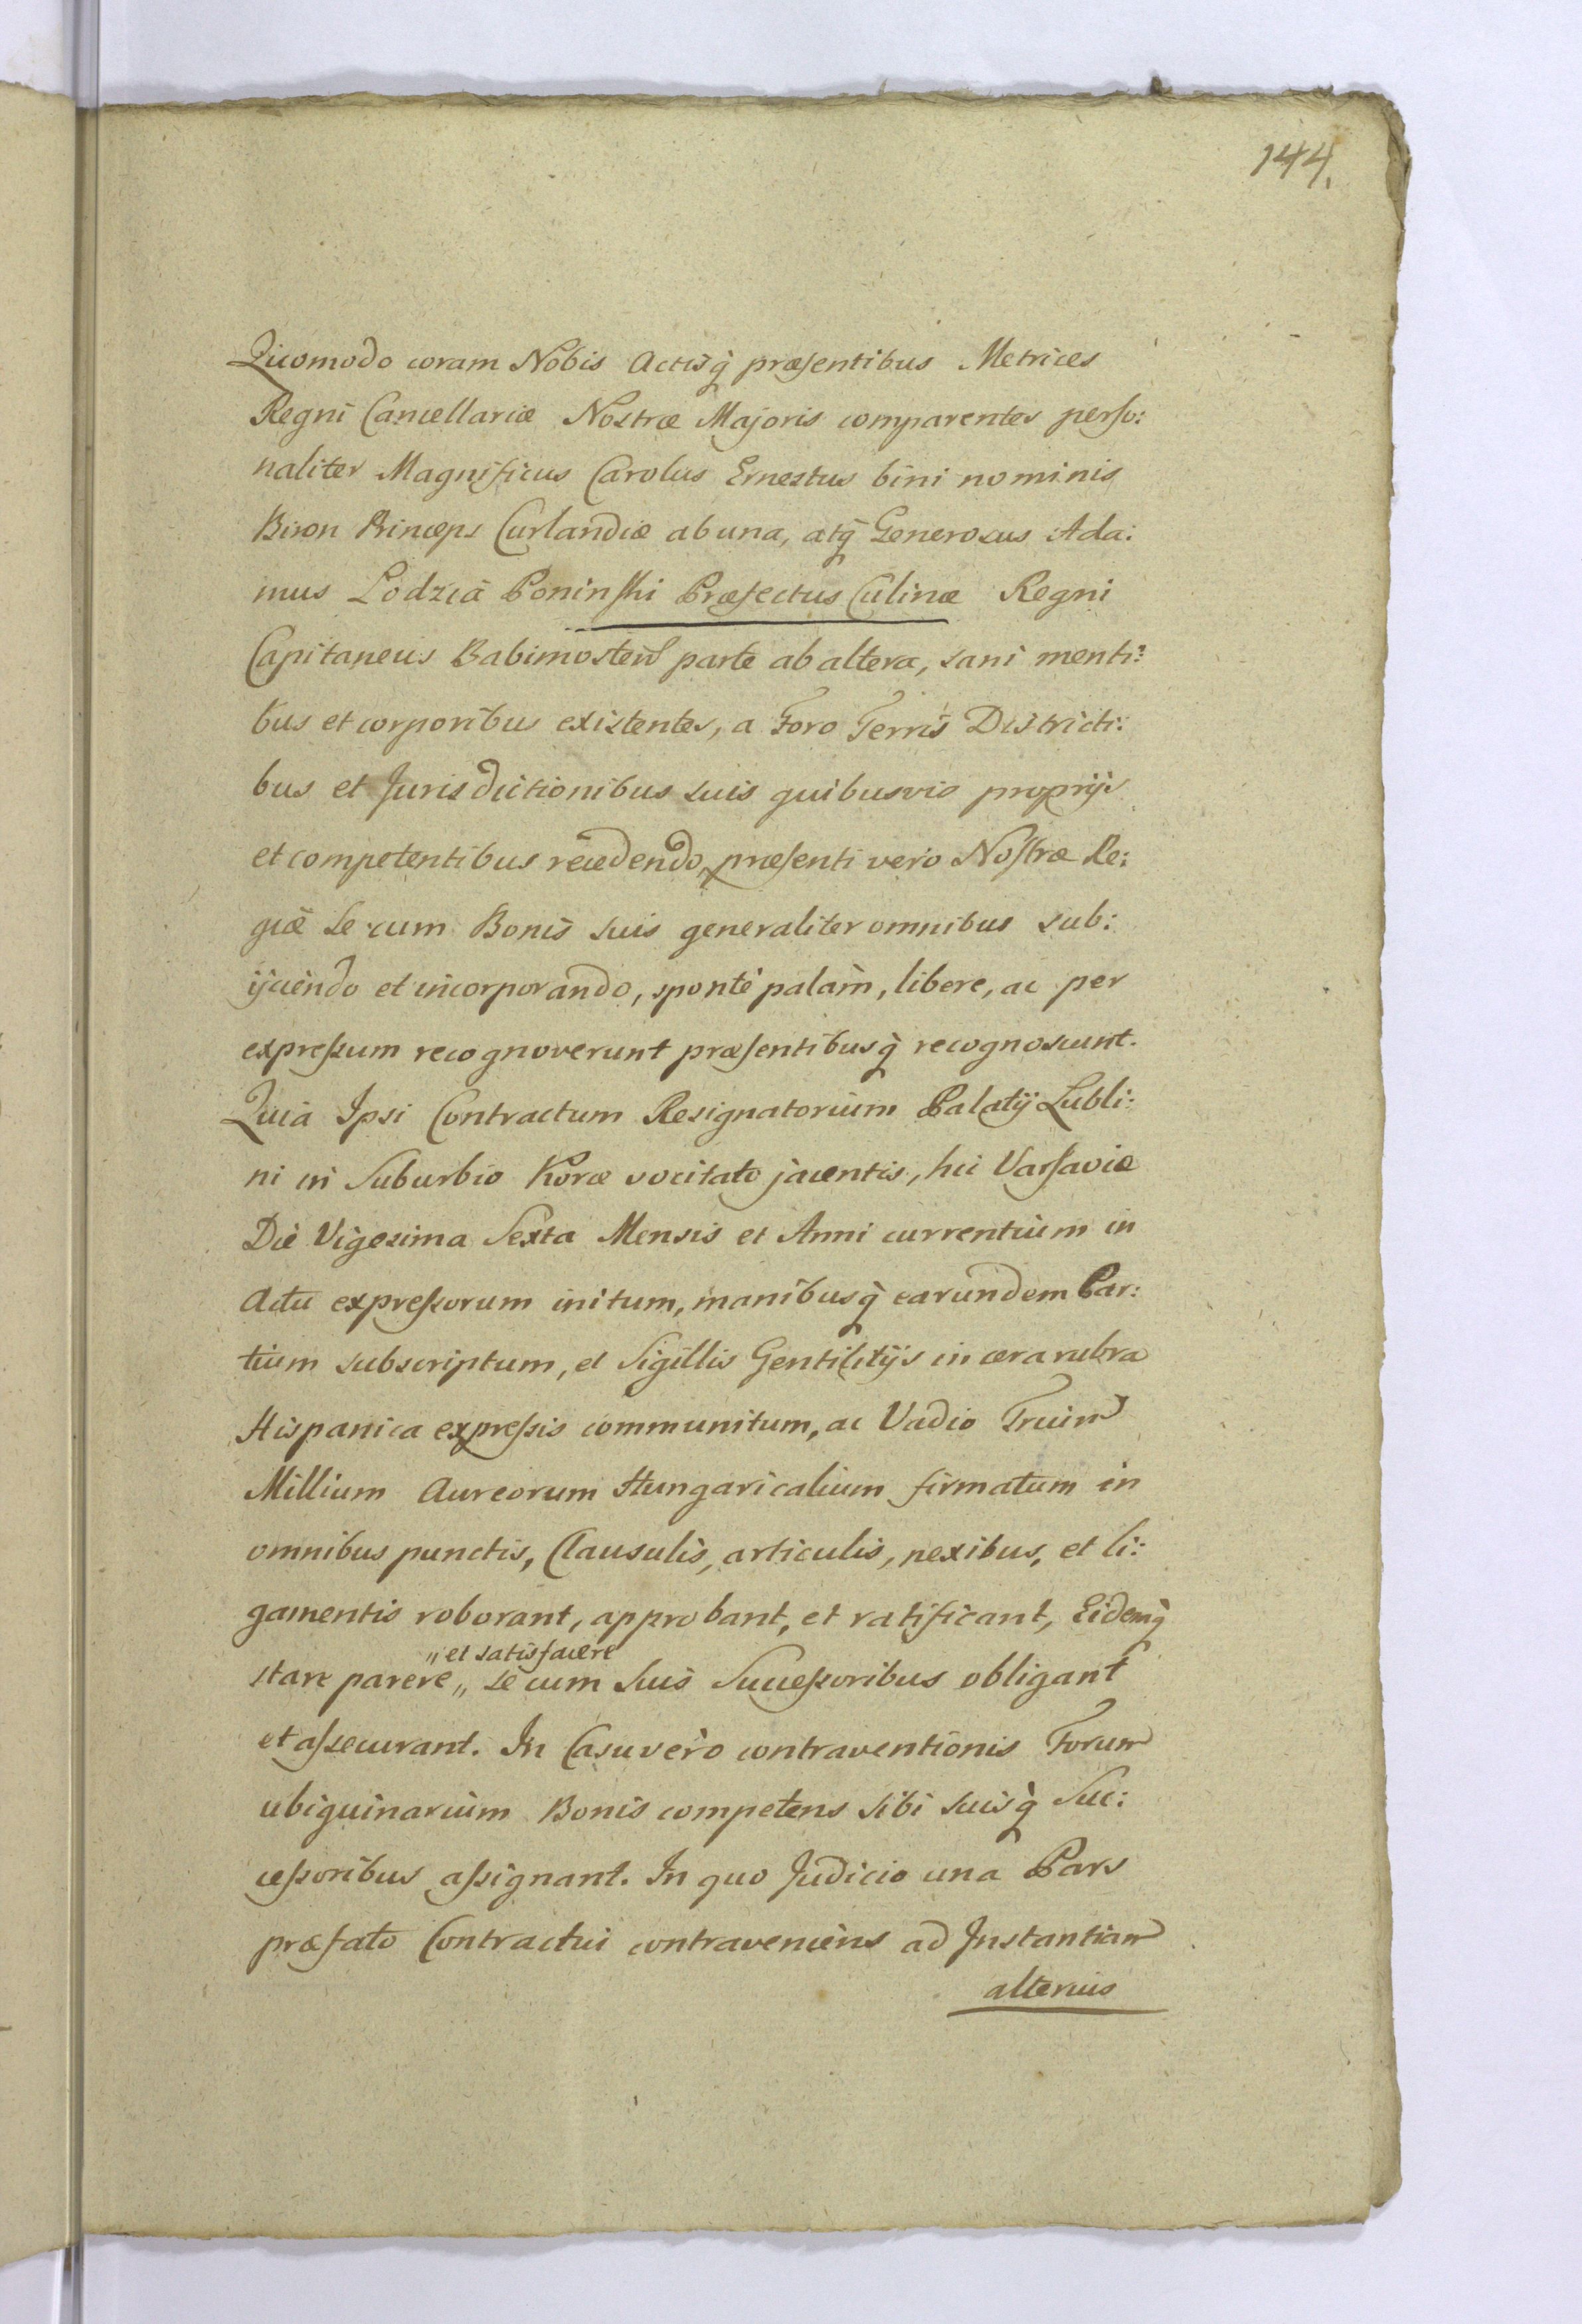 144.
Quomodo coram Nobis Actisq̀ præsentibus Metrices
Regni Cancellariæ Nostræ Majoris comparentes perso:
naliter Magnificus Carolus Ernestus bini nominis
Biron Princeps Curlandiæ ab una, atq̀ Generosus Ada:
mus Lodzia Poninski Præfectus Culinæ Regni
Capitaneus Babimosten parte ab altera, sani menti:
bus et corporibus existentes, a Foro Terris Districti:
bus et Jurisdictionibus suis quibusvis proprijs
et competentibus recedendo, præsenti vero Nostræ Re:
giæ se cum Bonis suis generaliter omnibus sub:
ijciendo et incorporando, sponte palam, libere, ac per
expressum recognoverunt præsentibusq̀ recognoscunt.
Quia Ipsi Contractum Resignatorium Palatij Lubli:
ni in Suburbio Korce vocitato jacentis, hic Varsaviæ
Die Vigesima Sexta Mensis et Anni currentium in
Actu expressorum initum, manibusq̀ earundem Par:
tium subscriptum, et Sigillis Gentilitijs in cera rubra
Hispanica expressis communitum, ac Vadio Trium
Millium Aureorum Hungaricalium firmatum in
omnibus punctis, Clausulis, articulis, nexibus, et li:
gamentis roborant, approbant, et ratificant, Eidemq̀
„ et satisfacere
stare parere „ se cum suis Successoribus obligant
et assecurant. In Casu vero contraventionis Forum
ubiquinarium Bonis competens sibi suisq̀ Suc:
cessoribus assignant. In quo Judicio una Pars
præfato Contractui contraveniens ad Instantiam
alterius